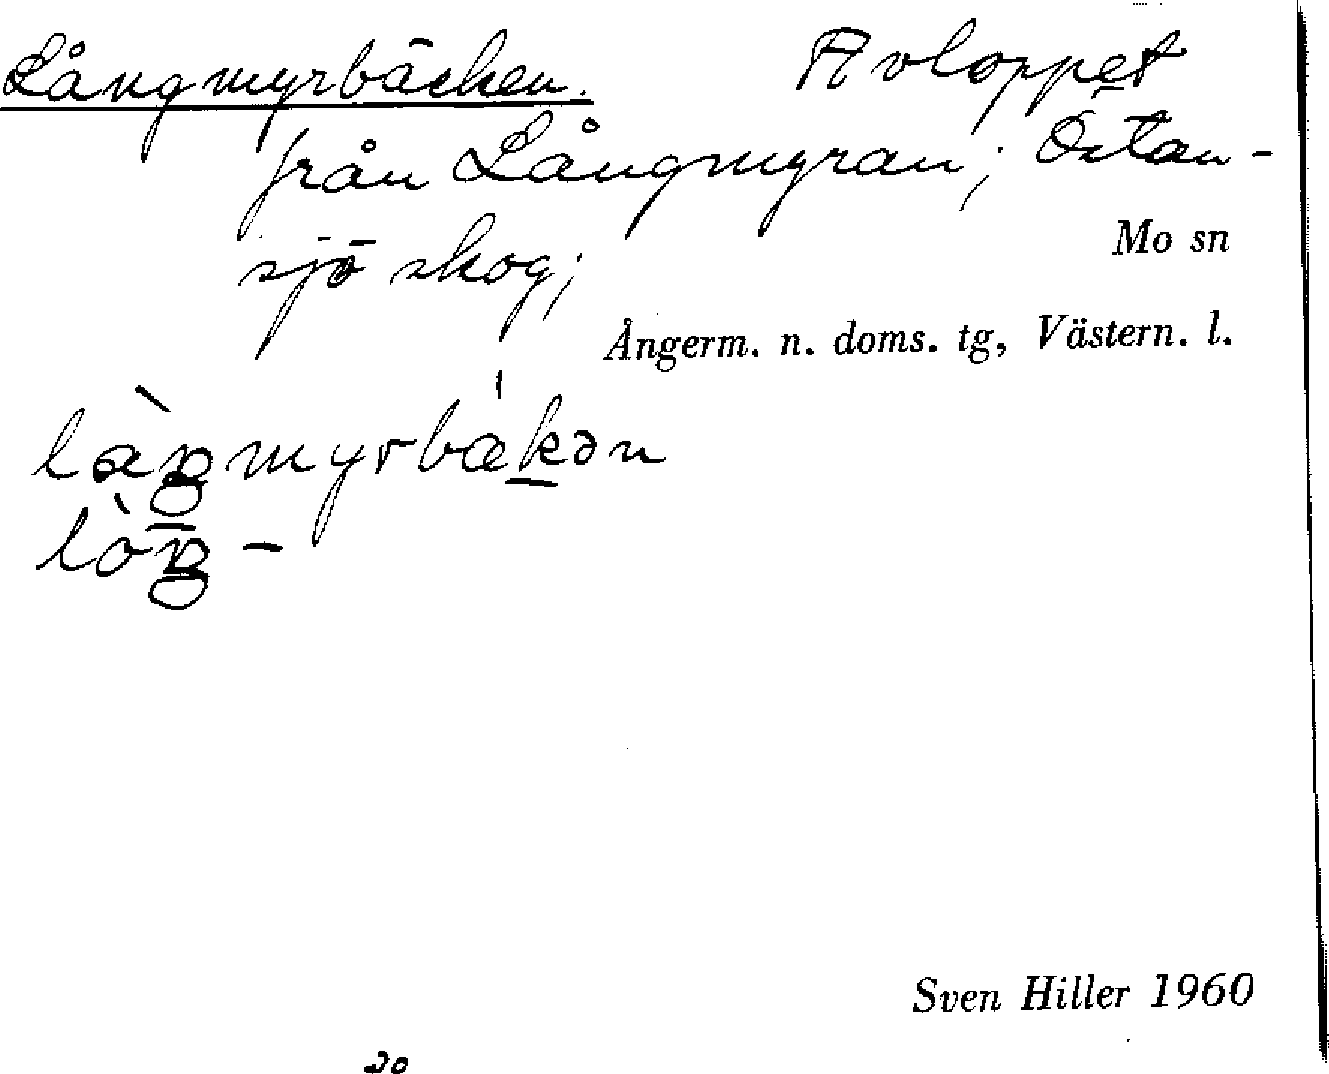 Långmyrbäcken. Avloppet
från Långmyran; Östan-
sjö skog;
Mo sn
Ångerm. n. doms. tg, Västern. l.
làŋmyrbǽkən
lòŋ-
Sven Hiller 1960
20